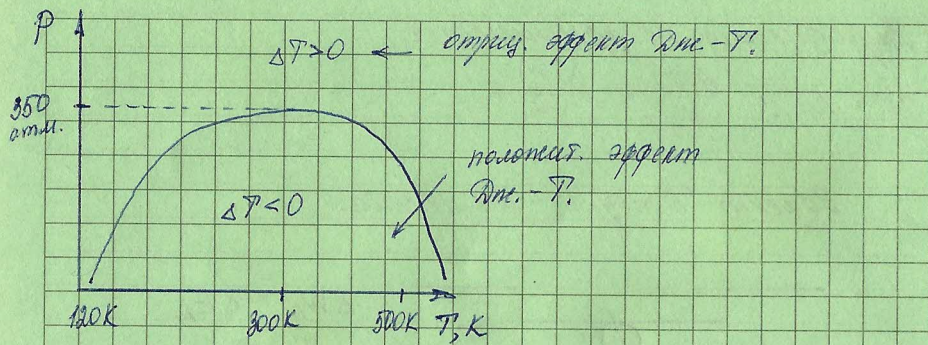 P
ΔT>0 ← отриц. эффект Дж-Т.
350
атм.
положит. эффект
Дж.-Т.
ΔT<0
120К 300К 500К Т, К